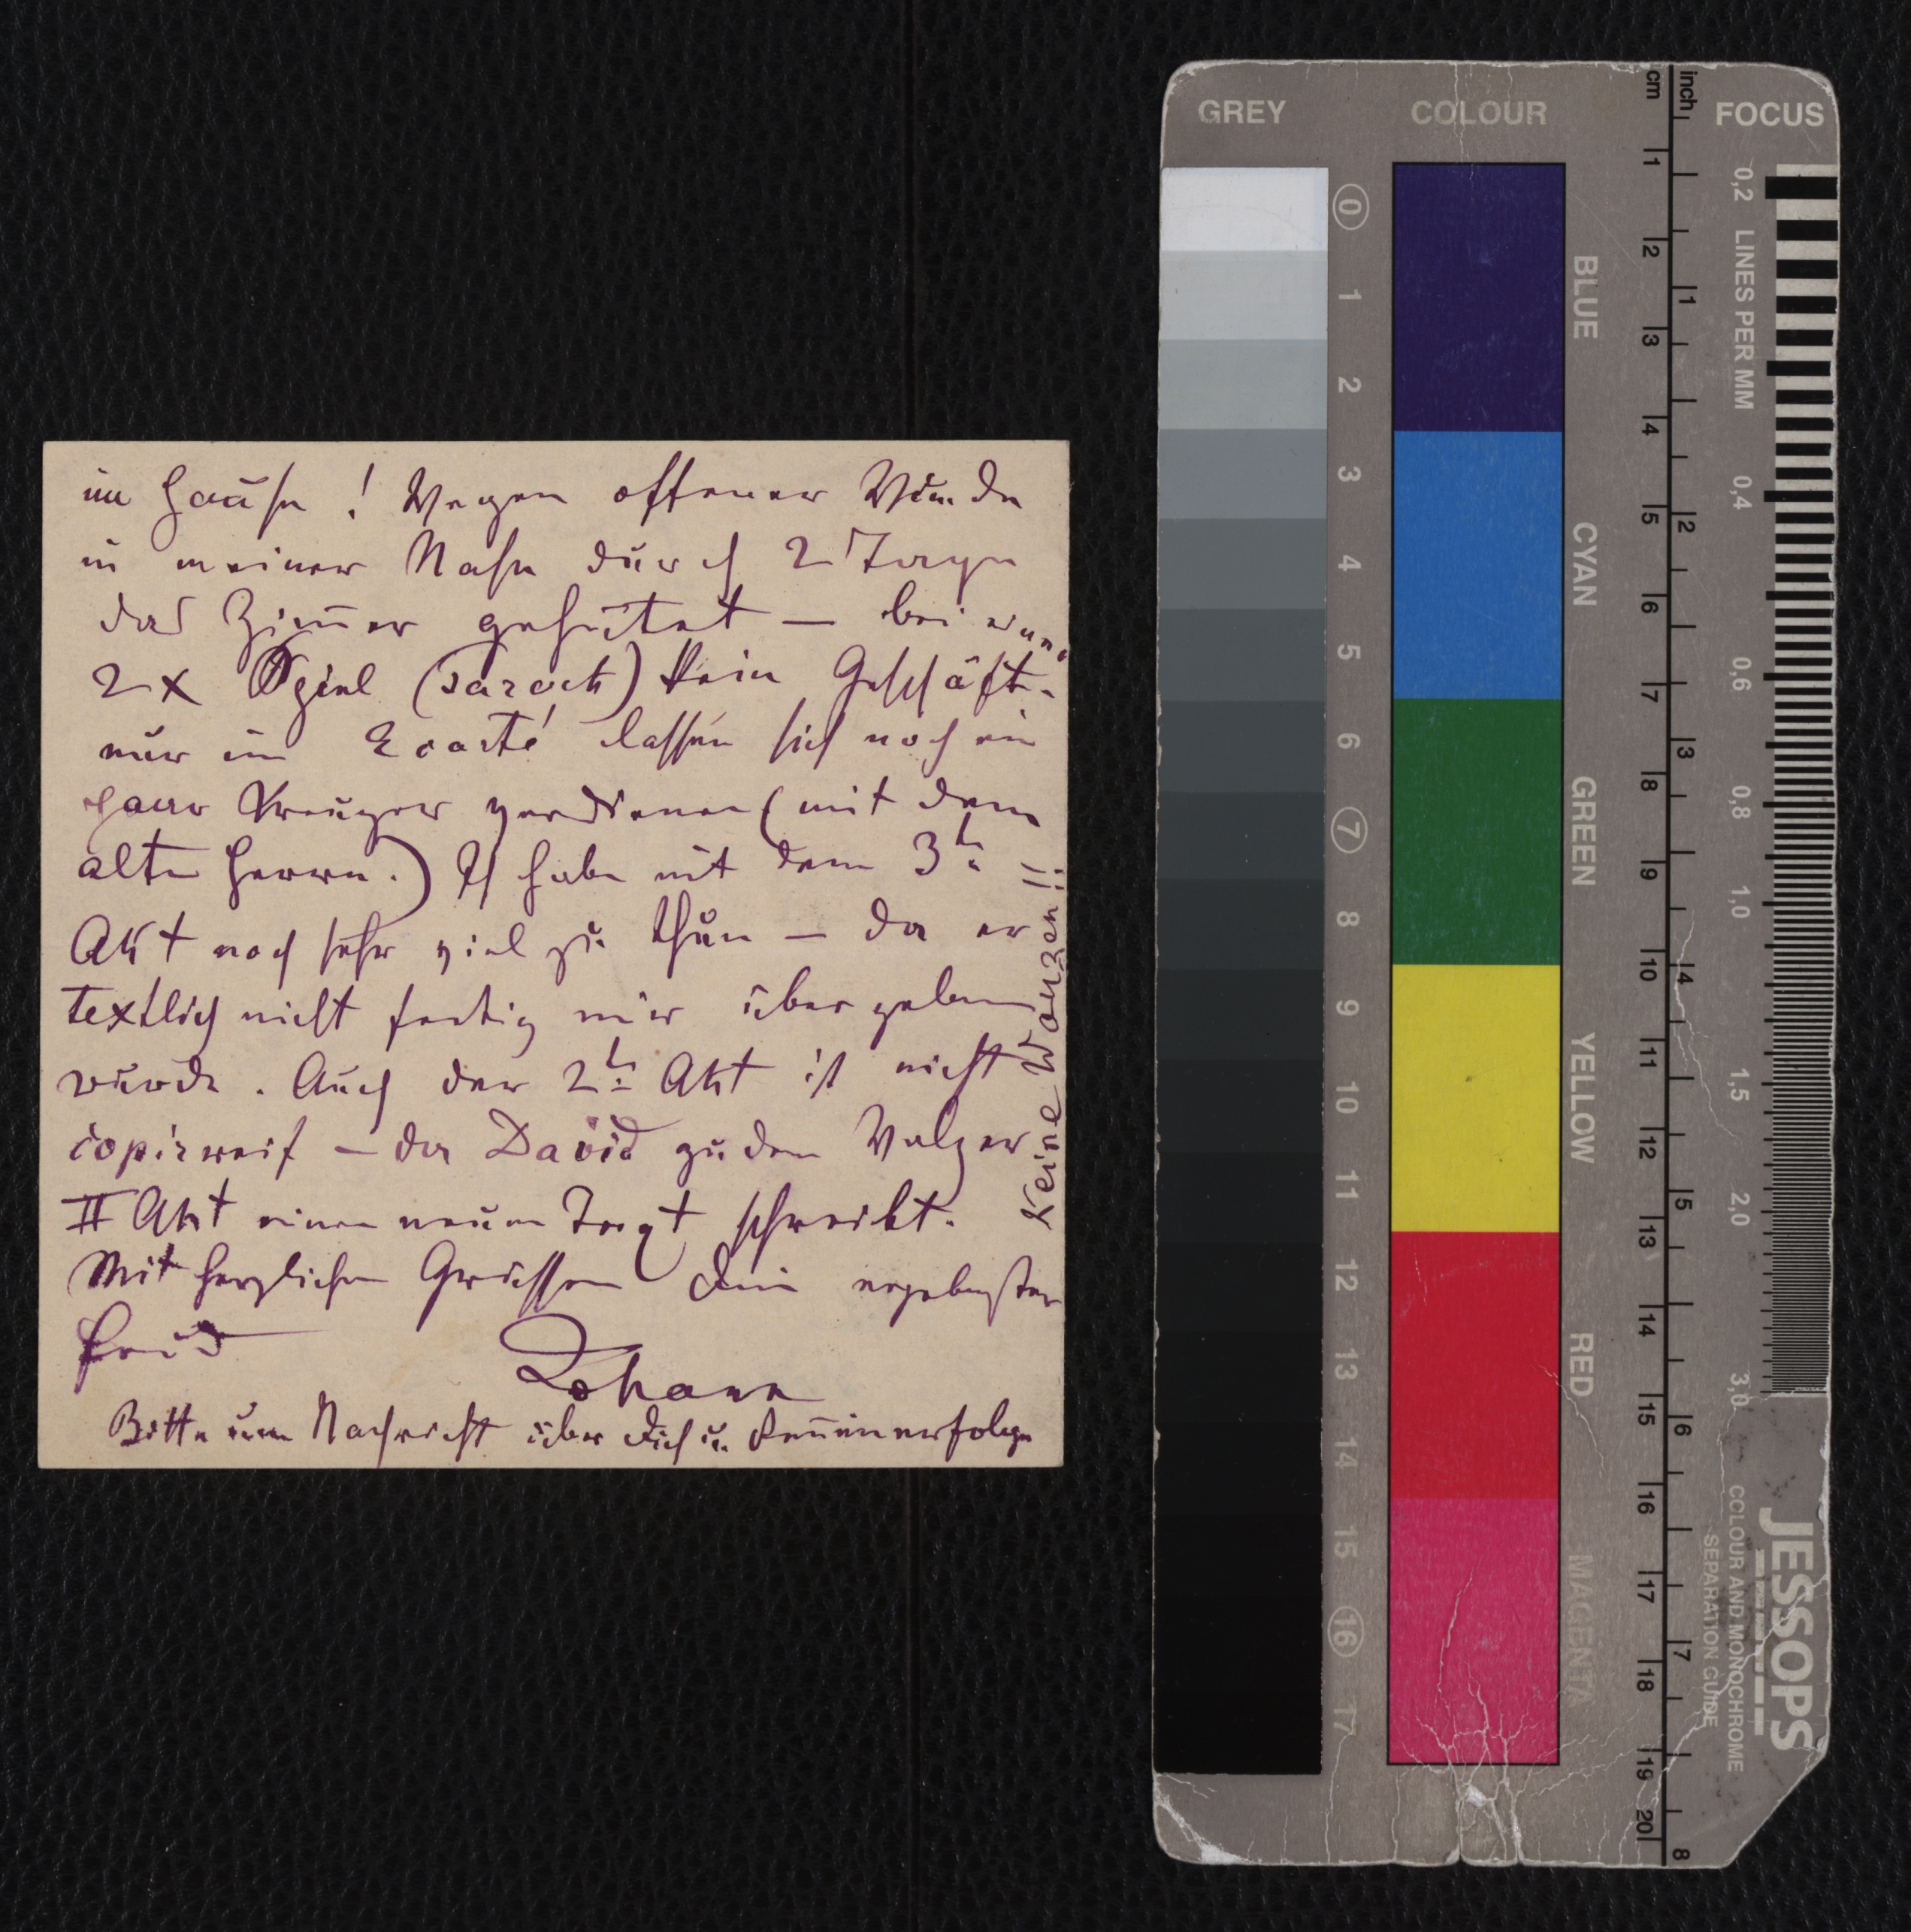 im Hause! Wegen offener Wunde
in meiner Nase durch 2 Tage
das Zimmer gehütet — bei
2 x Spiel (Tarock) kein Geschäft -
nur im Ecarté lassen sich noch ein
paar Kreuzer verdienen (mit dem
alten Herrn.) Ich habe mit dem 3t:
Akt noch sehr viel zu thun — da er
textlich nicht fertig mir übergeben
wurde. Auch der 2t: Akt ist nicht
copirreif — da David zu dem Walzer
II Akt einen neuen Text schreibt.
Mit herzlichen Grüssen Dein ergebenster
Freund
Johann
Bitte um Nachricht über Dich u.
Keine Wanzen!!
GREY
0
1
2
3
4
5
6
7
8
9
10
11
12
13
14
15
16
17
COLOUR
BLUE
CYAN
GREEN
YELLOW
RED
MAGENTA
cm
1
2
3
4
5
6
7
8
9
10
11
12
13
14
15
16
17
18
19
20
inch
1
2
3
4
5
6
7
8
FOCUS
0,2 LINES PER MM
0,4
0,6
0,8
1,0
1,5
2,0
3,0
JESSOPS
COLOUR AND MONOCHROME
SEPARATION GUIDE